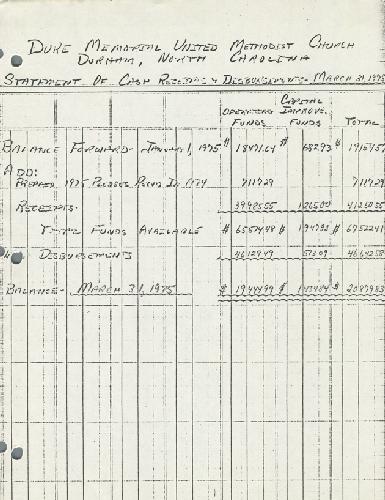 DUKE MEMORIAL UNITED METHODIST CHURCH
DURHAM, NORTH CAROLINA
STATEMENT OF CASH RECEIPTS & DISBURSEMENTS - MARCH 31, 1975
CAPITAL
OPERATING IMPROVE.
FUNDS FUNDS TOTAL
BALANCE FORWARD - JANUARY 1, 1975 $ 1847164 $ 68293 $ 1915457
ADD:
PREPAID 1975 PLEDGES RECVD IN 1974 711729 711729
RECEIPTS 3998555 126500 4125055
TOTAL FUNDS AVAILABLE $ 6557448 $ 194793 $ 6752241
DISBURSEMENTS 4612949 51309 4664258
BALANCE - MARCH 31, 1975 $ 1944499 $ 143484 $ 2087983